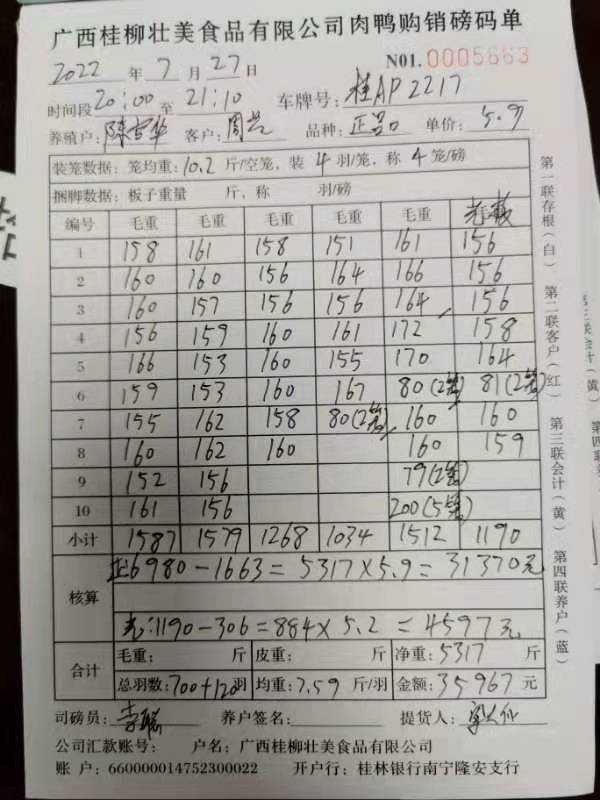 广西桂柳壮美食品有限公司肉鸭购销磅码单
2022 年 7 月 27 日 N01.0005663
时间段 20:00 至 21:10 车牌号: 桂AP2217
养殖户: 陈雪华 客户: 周艺 品种: 正品 单价: 5.9
装笼数据: 笼均重: 10.2 斤/空笼, 装 4 羽/笼, 称 4 笼/磅
捆脚数据: 板子重量 斤, 称 羽/磅
编号 毛重 毛重 毛重 毛重 毛重
1 158 161 158 151 161 156
2 160 160 156 164 166 156
3 160 157 156 156 164 156
4 156 159 160 161 172 158
5 166 153 160 155 170 164
6 159 153 160 167 80(2笼) 81(2笼)
7 155 162 158 80(2笼) 160 160
8 160 162 160 160 159
9 152 156 79(2笼)
10 161 156 200(5笼)
小计 1587 1579 1268 1034 1512 1190
核算
正6980-1663=5317×5.9=31370元
1190-306=884×5.2=4597元
合计
毛重: 斤 皮重: 斤 净重: 5317 斤
总羽数: 700+120羽 均重: 7.59 斤/羽 金额: 35967 元
司磅员: 养户签名: 提货人:
公司汇款账号: 户名: 广西桂柳壮美食品有限公司
账 户: 660000014752300022 开户行: 桂林银行南宁隆安支行
第一联存根(白) 第二联客户(红) 第三联会计(黄) 第四联养户(蓝)